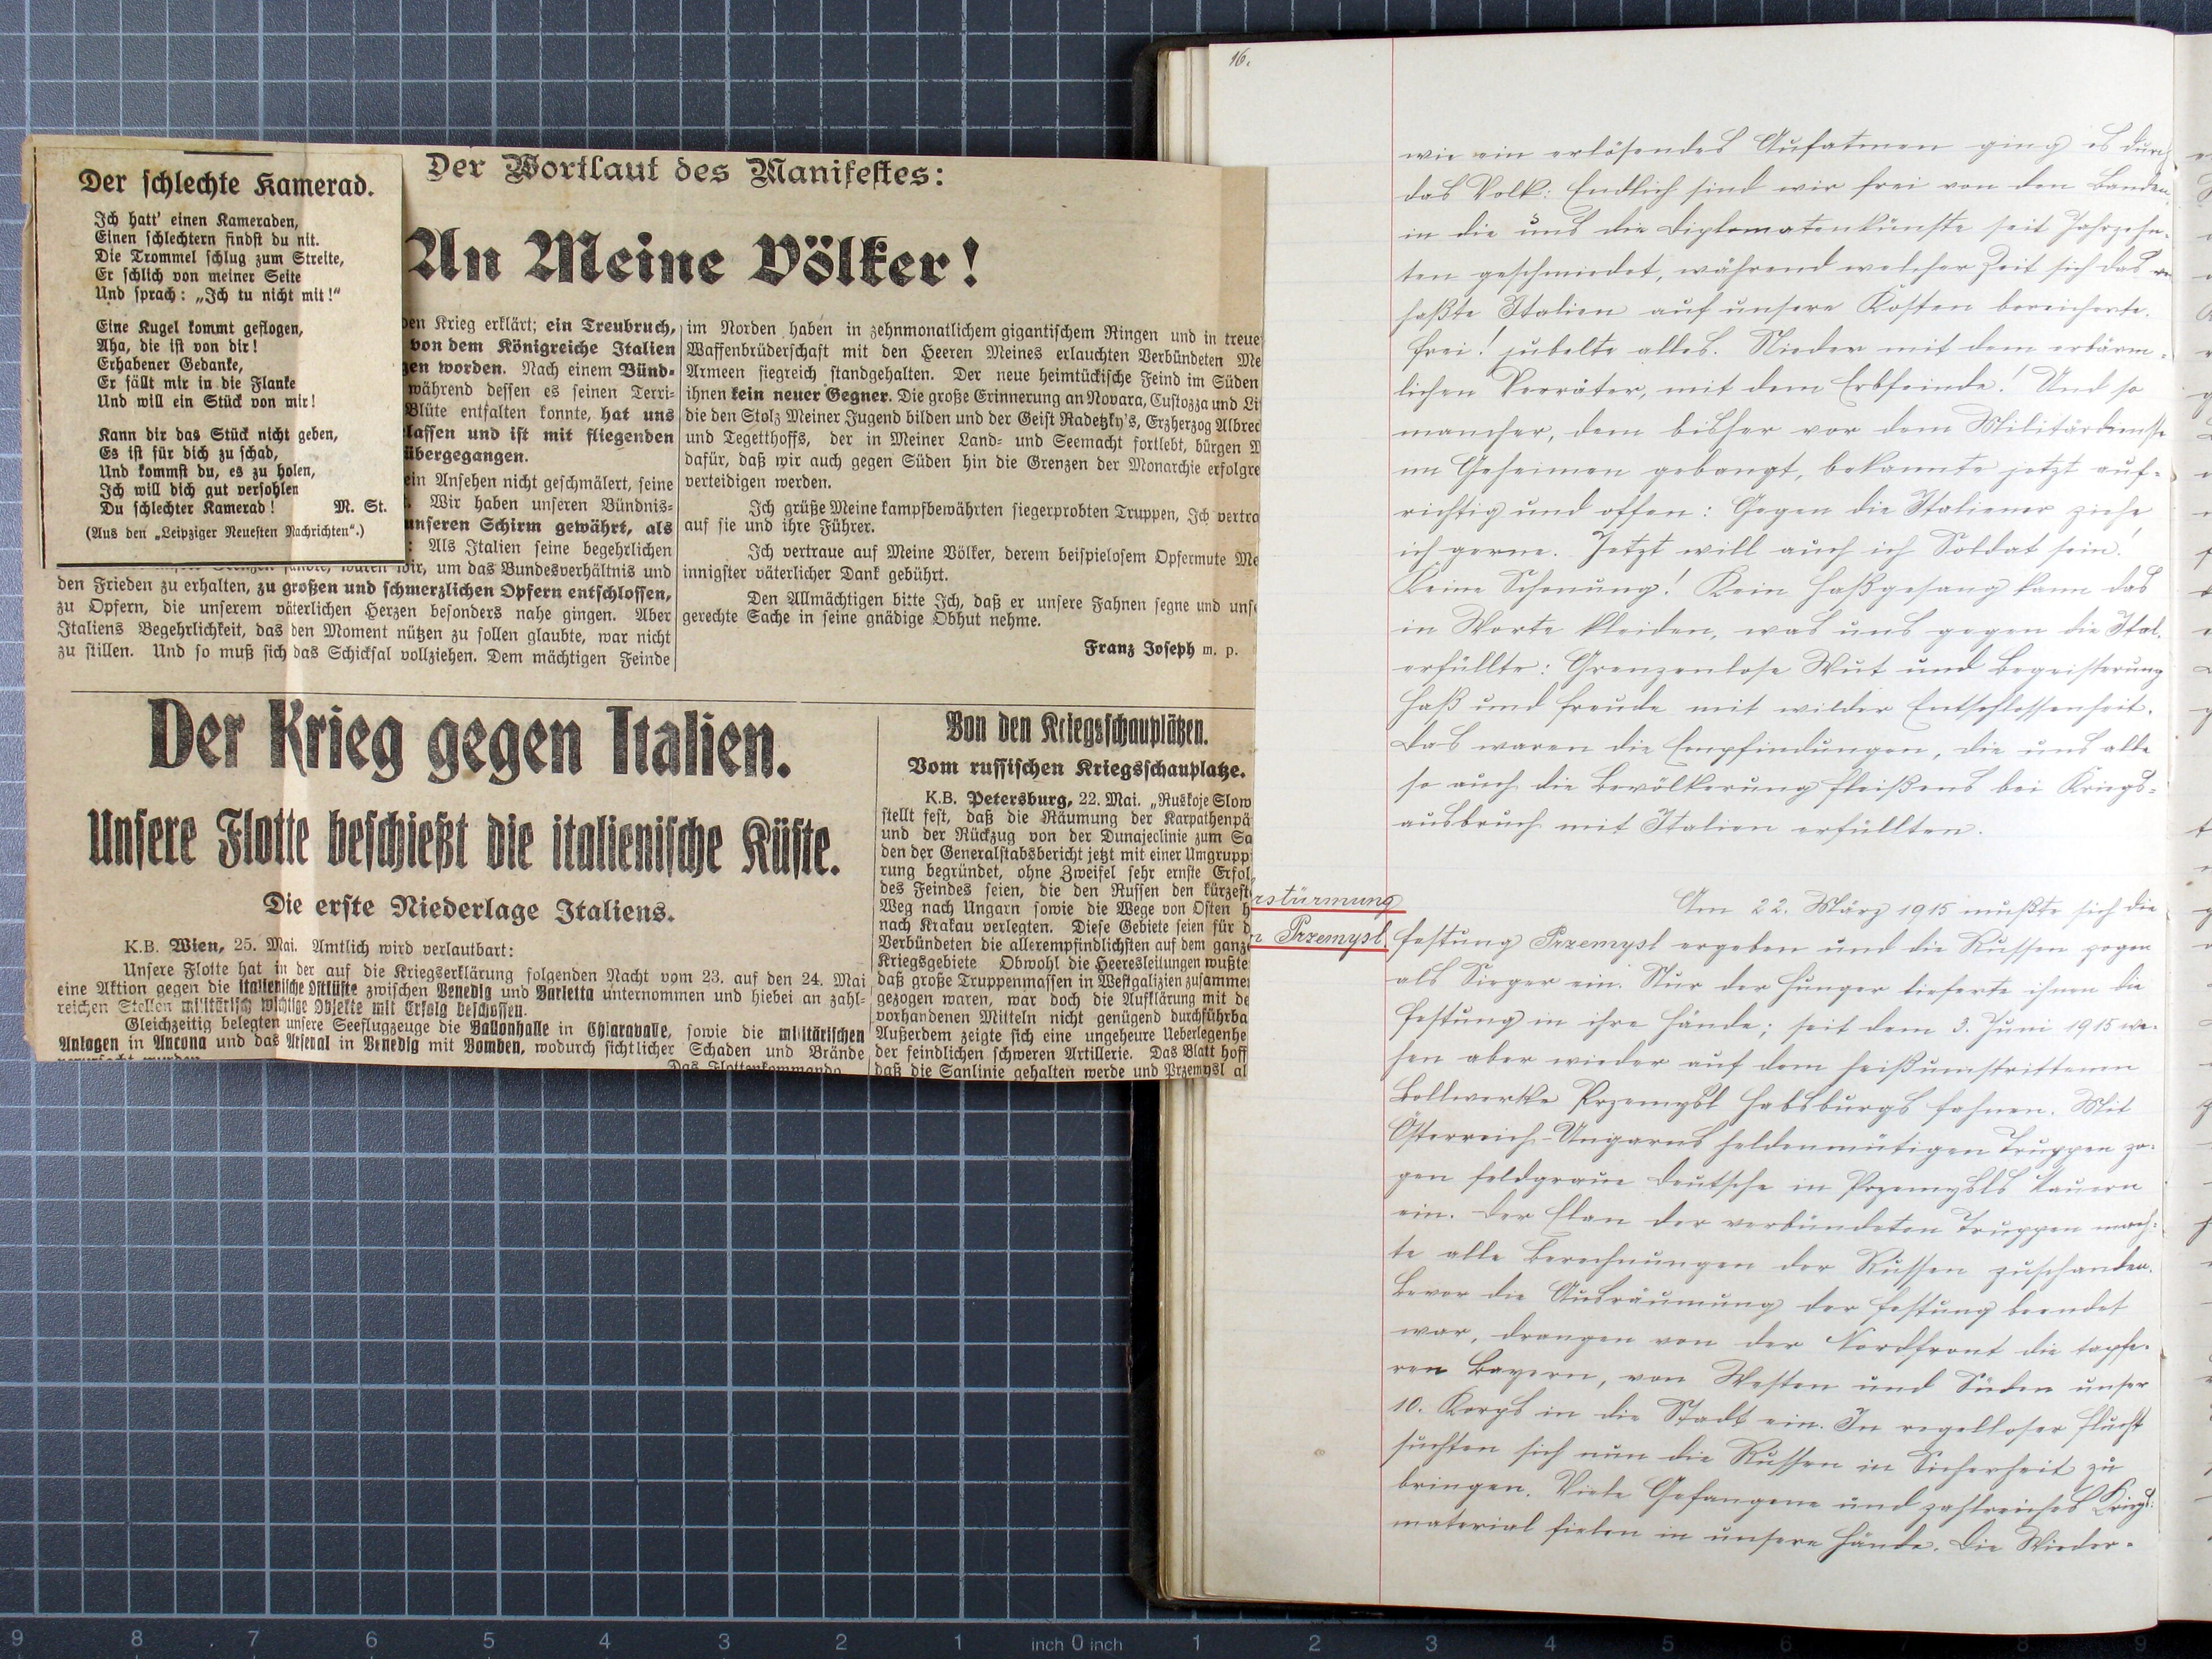 Der schlechte Kamerad.
Ich hatt' einen Kameraden,
Einen schlechtern findst du nit.
Die Trommel schlug zum Streite,
Er schlich von meiner Seite
Und sprach: „Ich tu nicht mit!“
Eine Kugel kommt geflogen,
Aha, die ist von dir!
Erhabener Gedanke,
Er fällt mir in die Flanke
Und will ein Stück von mir!
Kann dir das Stück nicht geben,
Es ist für dich zu schad,
Und kommst du, es zu holen,
Ich will dich gut versohlen
Du schlechter Kamerad! M. St.
(Aus den „Leipziger Neuesten Nachrichten“.)
Der Wortlaut des Manifestes:
An Meine Völker!
den Krieg erklärt; ein Treubruch,
von dem Königreiche Italien
gen worden. Nach einem Bünd-
während dessen es seinen Terri-
Blüte entfalten konnte, hat uns
lassen und ist mit fliegenden
übergegangen.
ein Ansehen nicht geschmälert, seine
Wir haben unseren Bündnis-
unseren Schirm gewährt, als
: Als Italien seine begehrlichen
wir, um das Bundesverhältnis und
den Frieden zu erhalten, zu großen und schmerzlichen Opfern entschlossen,
zu Opfern, die unserem väterlichen Herzen besonders nahe gingen. Aber
Italiens Begehrlichkeit, das den Moment nützen zu sollen glaubte, war nicht
zu stillen. Und so muß sich das Schicksal vollziehen. Dem mächtigen Feinde
im Norden haben in zehnmonatlichem gigantischem Ringen und in treue
Waffenbrüderschaft mit den Heeren Meines erlauchten Verbündeten Me
Armeen siegreich standgehalten. Der neue heimtückische Feind im Süden
ihnen kein neuer Gegner. Die große Erinnerung an Novara, Custozza und Li
die den Stolz Meiner Jugend bilden und der Geist Radetzky's, Erzherzog Albrec
und Tegetthoffs, der in Meiner Land- und Seemacht fortlebt, bürgen M
dafür, daß wir auch gegen Süden hin die Grenzen der Monarchie erfolgre
verteidigen werden.
Ich grüße Meine kampfbewährten siegerprobten Truppen, Ich vertra
auf sie und ihre Führer.
Ich vertraue auf Meine Völker, derem beispielosem Opfermute Me
innigster väterlicher Dank gebührt.
Den Allmächtigen bitte Ich, daß er unsere Fahnen segne und unse
gerechte Sache in seine gnädige Obhut nehme.
Franz Joseph m. p.
Der Krieg gegen Italien.
Unsere Flotte beschießt die italienische Küste.
Die erste Niederlage Italiens.
K.B. Wien, 25. Mai. Amtlich wird verlautbart:
Unsere Flotte hat in der auf die Kriegserklärung folgenden Nacht vom 23. auf den 24. Mai
eine Aktion gegen die italienische Ostküste zwischen Venedig und Barletta unternommen und hiebei an zahl-
reichen Stellen militärisch wichtige Objekte mit Erfolg beschossen.
Gleichzeitig belegten unsere Seeflugzeuge die Ballonhalle in Chiaravalle, sowie die militärischen
Anlagen in Ancona und das Arsenal in Venedig mit Bomben, wodurch sichtlicher Schaden und Brände
verursacht wurden
Das Flottenkommando
Von den Kriegsschauplätzen.
Vom russischen Kriegsschauplatze.
K.B. Petersburg, 22. Mai. „Ruskoje Slow
stellt fest, daß die Räumung der Karpathenpä
und der Rückzug von der Dunajeclinie zum Sa
den der Generalstabsbericht jetzt mit einer Umgrupp
rung begründet, ohne Zweifel sehr ernste Erfol
des Feindes seien, die den Russen den kürzest
Weg nach Ungarn sowie die Wege von Osten h
nach Krakau verlegten. Diese Gebiete seien für d
Verbündeten die allerempfindlichsten auf dem ganze
Kriegsgebiete Obwohl die Heeresleitungen wußte
daß große Truppenmassen in Westgalizien zusamme
gezogen waren, war doch die Aufklärung mit de
vorhandenen Mitteln nicht genügend durchführba
Außerdem zeigte sich eine ungeheure Ueberlegenhe
der feindlichen schweren Artillerie. Das Blatt hoff
daß die Sanlinie gehalten werde und Przemysl al
16.
wie ein erlösendes Aufatmen ging es durch
das Volk: Endlich sind wir frei von den Banden,
in die uns die Diplomatenkünste seit Jahrzehn-
ten geschmiedet, während welcher Zeit sich das ver
haßte Italien auf unsere Kosten bereicherte.
Frei! jubelte alles. Nieder mit dem erbärm-
lichen Verräter, mit dem Erbfeinde! Und so
mancher, dem bisher vor dem Militärdienste
im Geheimen gebangt, bekannte jetzt auf-
richtig und offen: Gegen die Italiener ziehe
ich gerne. Jetzt will auch ich Soldat sein!
Keine Schonung! Kein Haßgesang kann das
in Worte kleiden, was uns gegen die Ital.
erfüllte: Grenzenlose Wut und Begeisterung
Haß und Freude mit wilder Entschlossenheit.
Das waren die Empfindungen, die uns alle
so auch die Bevölkerung Fleißens bei Kriegs-
ausbruch mit Italien erfüllten.
rstürmung
n Przemysl
Am 22. März 1915 mußte sich die
Festung Przemysl ergeben und die Russen zogen
als Sieger ein. Nur der Hunger lieferte ihnen die
Festung in ihre Hände; seit dem 3. Juni 1915 we-
hen aber wieder auf dem heißumstrittenen
Bollwerke Przemysl Habsburgs Fahnen. Mit
Österreich-Ungarns heldenmütigen Truppen zo-
gen feldgraue Deutsche in Przemysls Mauern
ein. Der Elan der verbündeten Truppen mach-
te alle Berechnungen der Russen zuschanden.
Bevor die Ausräumung der Festung beendet
war, drangen von der Nordfront die tapfe-
ren Bayern, von Westen und Süden unser
10. Korps in die Stadt ein. In regelloser Flucht
suchten sich nun die Russen in Sicherheit zu
bringen. Viele Gefangene und zahlreiches Kriegs-
material fielen in unsere Hände. Die Wieder-
9 8 7 6 5 4 3 2 1 inch 0 inch 1 2 3 4 5 6 7 8 9